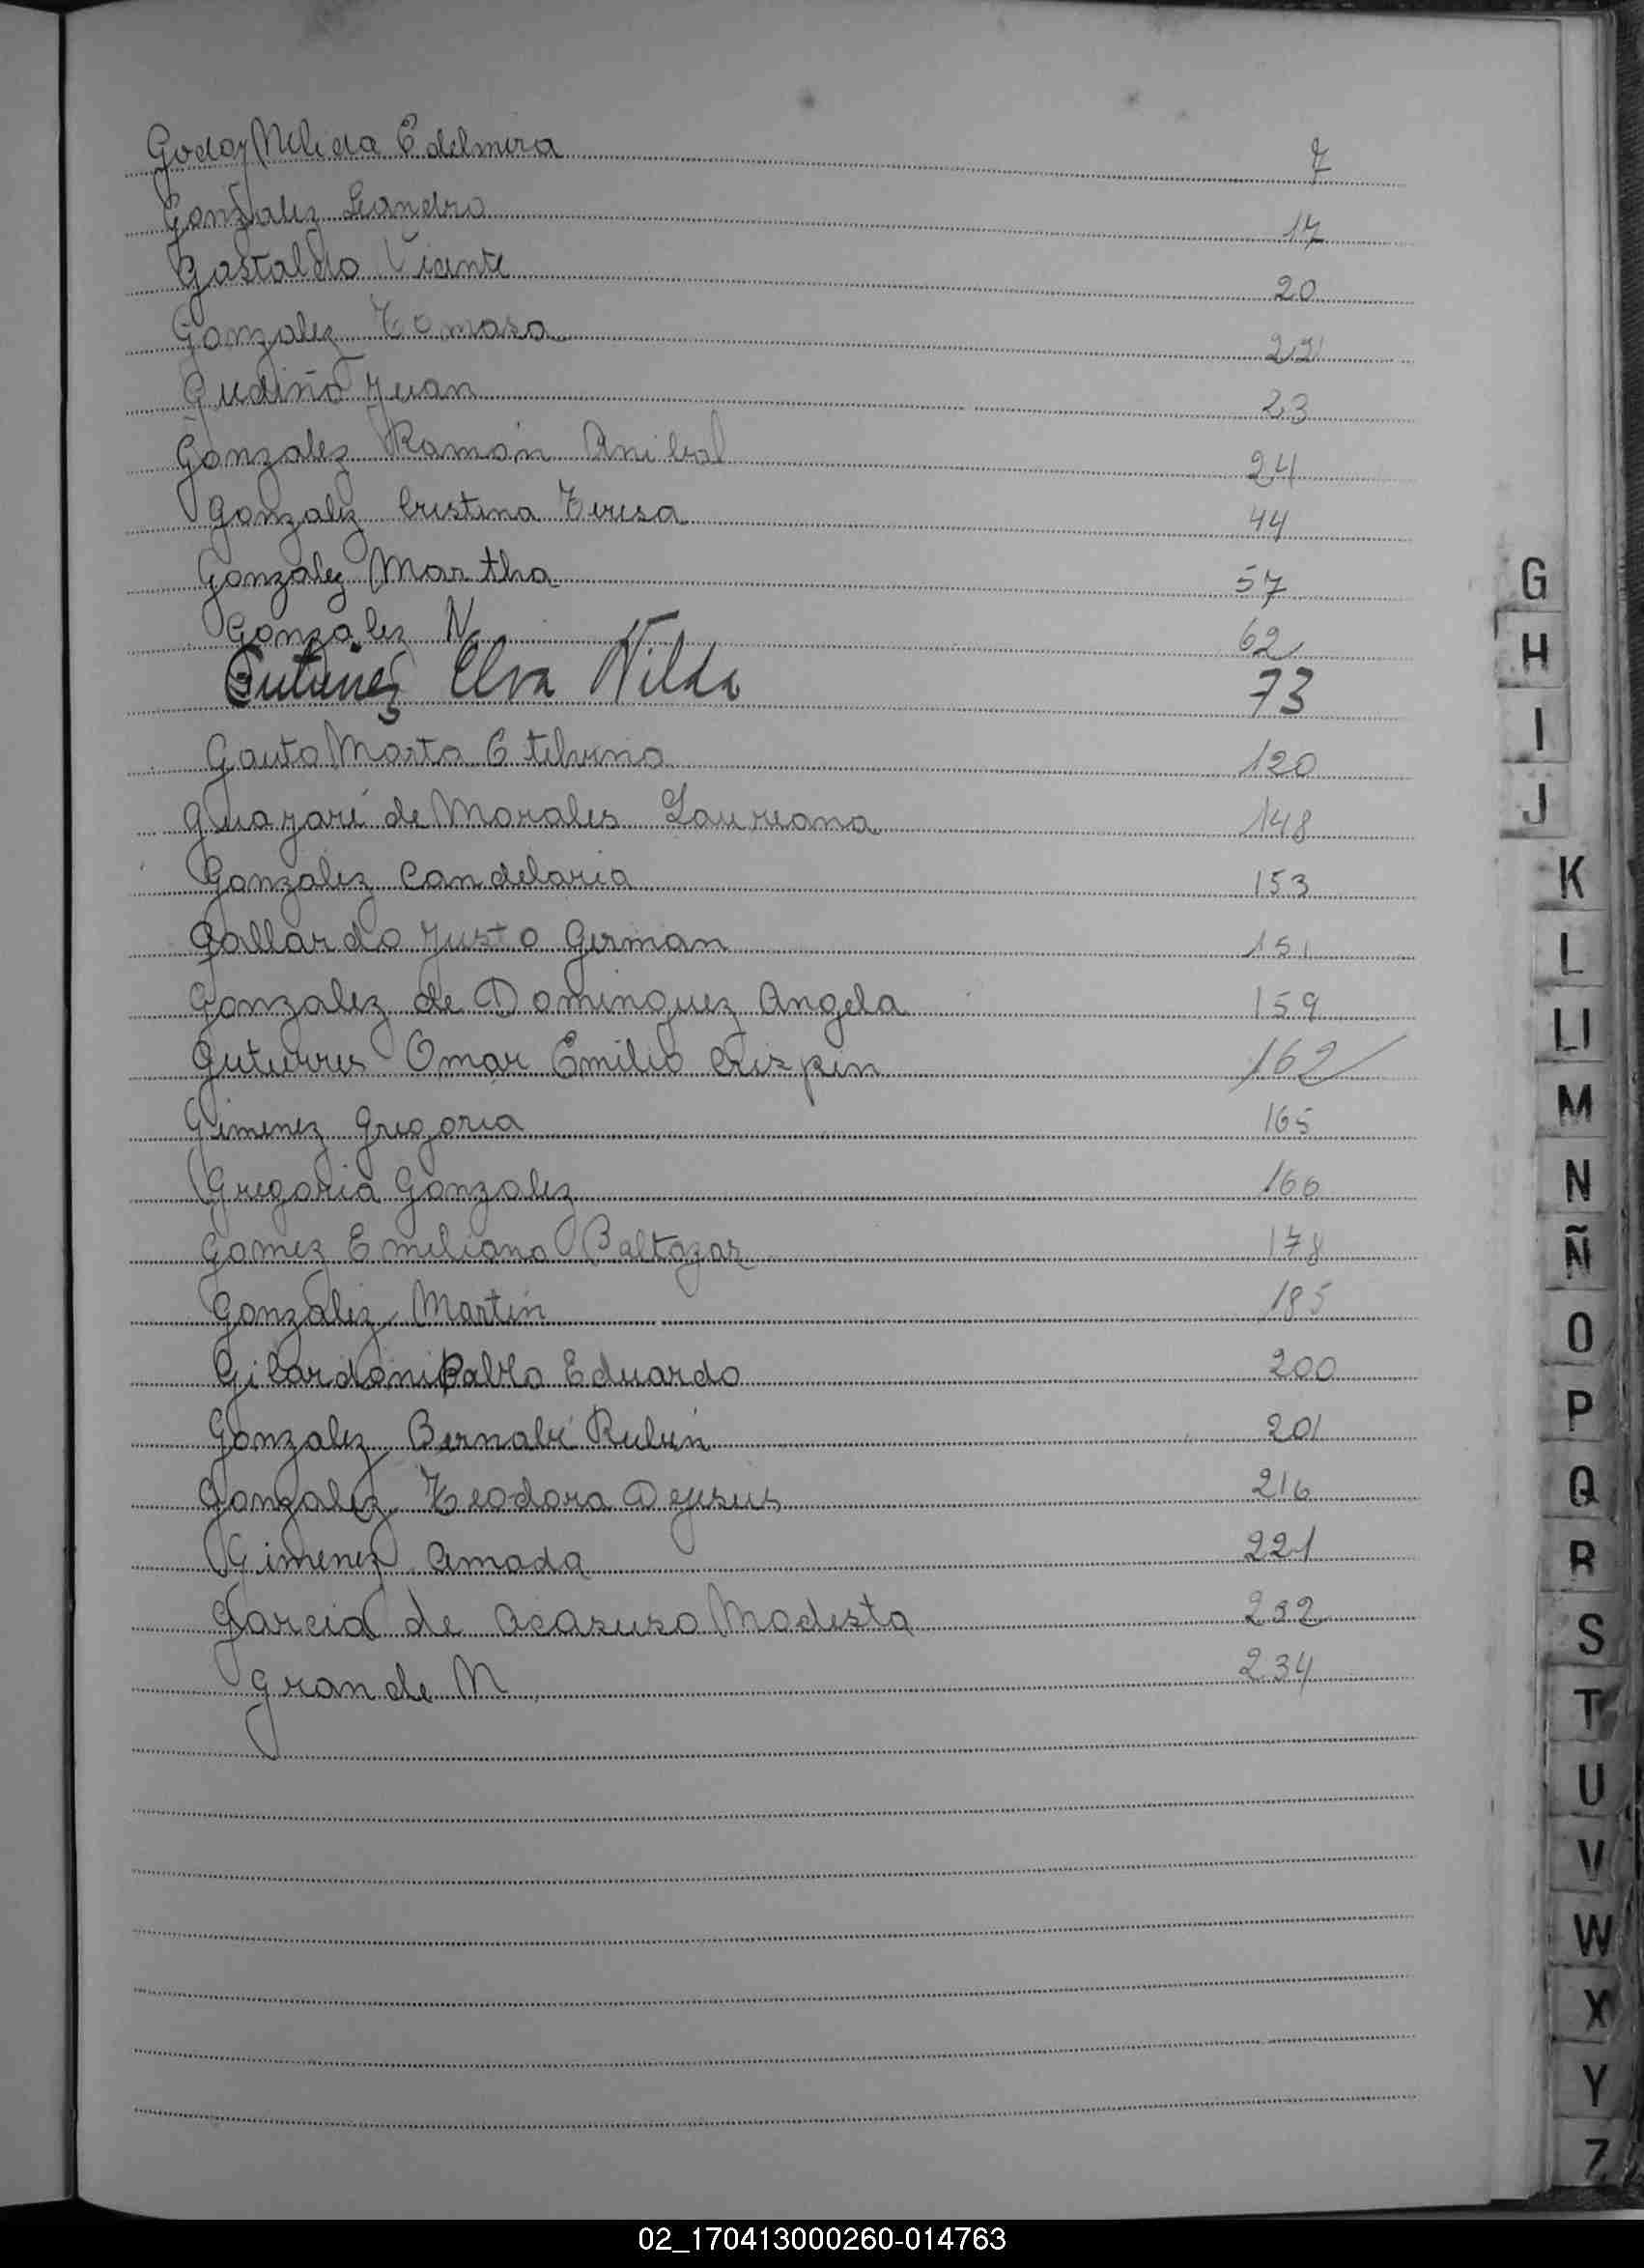 Godoy Nelida Edelmira 7
Gonzalez Leandro 17
Gastaldo Vicente 20
Gonzalez Tomasa 22
Gudiño Juan 23
Gonzalez Ramón Anibal 24
Gonzalez Cristina Teresa 44
Gonzalez Martha 57
Gonzalez N. 62
Elva Nilda 73
Gauto Marta Etelvina 120
Guayaré de Morales Laureana 148
Gonzalez Candelaria 153
Gallardo Justo German 151
Gonzalez de Dominguez Angela 159
Gutierres Omar Emilio Crispin 162
Gimenez Gregoria 165
Gregoria Gonzalez 166
Gomez Emiliano Baltazar 178
González Martín 185
Gilardoni Pablo Eduardo 200
Gonzalez Bernabé Rubén 201
Gonzalez Teodora Dejesus 216
Gimenez Amada 221
Garcia de Acasuso Modesta 232
Grande N 234
G
H
I
J
K
L
Ll
M
N
Ñ
O
P
Q
R
S
T
U
V
W
X
Y
Z
02_170413000260-014763